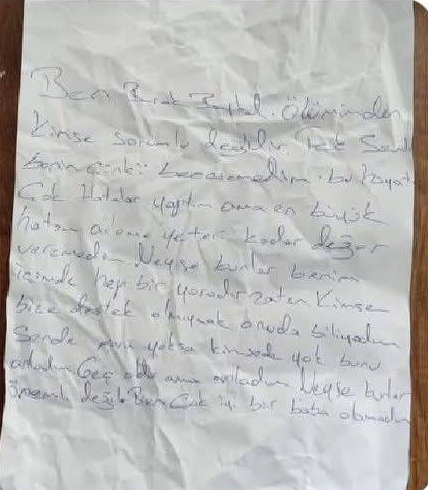 Ben Burak Baykal. Ölümünden
Kimse sorumlu değildir Tek
benim çünkü beceremedim. bu hayatı
Çok Hatalar yaptım ama en büyük
hatam aileme yeter kadar değer
veremedim Neyse bunlar benim
içimde hep bir yaradır zaten Kimse
bize destek olmıyacak onuda biliyodum
Sende para yoksa kimsede yok bunu
anladım Geç oldu ama anladım Neyse bunlar
önemli değil. Ben Çok iyi bir baba olamadım